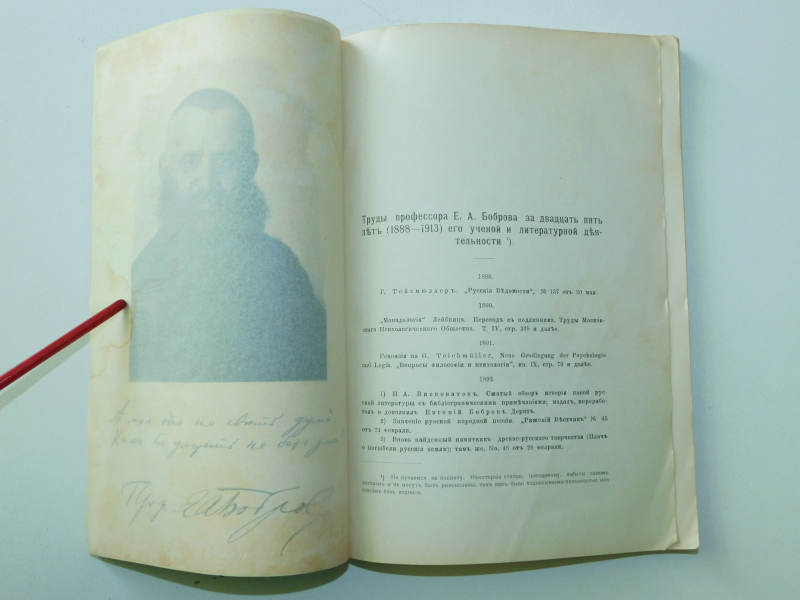 Проф. ЕАБобров
Труды профессора Е. А. Боброва за двадцать пять
лѣтъ (1888—1913) его ученой и литературной дѣя-
тельности ¹).
1888.
Г. Тейхмюллеръ. „Русскія Вѣдомости“, № 137 отъ 20 мая.
1890.
„Монадологія“ Лейбница. Переводъ съ подлинника. Труды Москов-
скаго Психологическаго Общества. Т. IV, стр. 339 и далѣе.
1891.
Рецензія на G. Teichmüller, Neue Grundlegung der Psychologie
und Logik. „Вопросы философіи и психологіи“, кн. IX, стр. 70 и далѣе.
1892.
1) П. А. Висковатовъ. Сжатый обзоръ исторіи новой рус-
ской литературы съ библіографическими примѣчаніями; издалъ, переработ-
алъ и дополнилъ Евгеній Бобровъ. Дерптъ.
2) Значеніе русской народной поэзіи. „Рижскій Вѣстникъ“ № 45
отъ 24 февраля.
3) Вновь найденный памятникъ древне-русскаго творчества (Плачъ
о погибели русскія земли); тамъ же, No. 48 отъ 28 февраля.